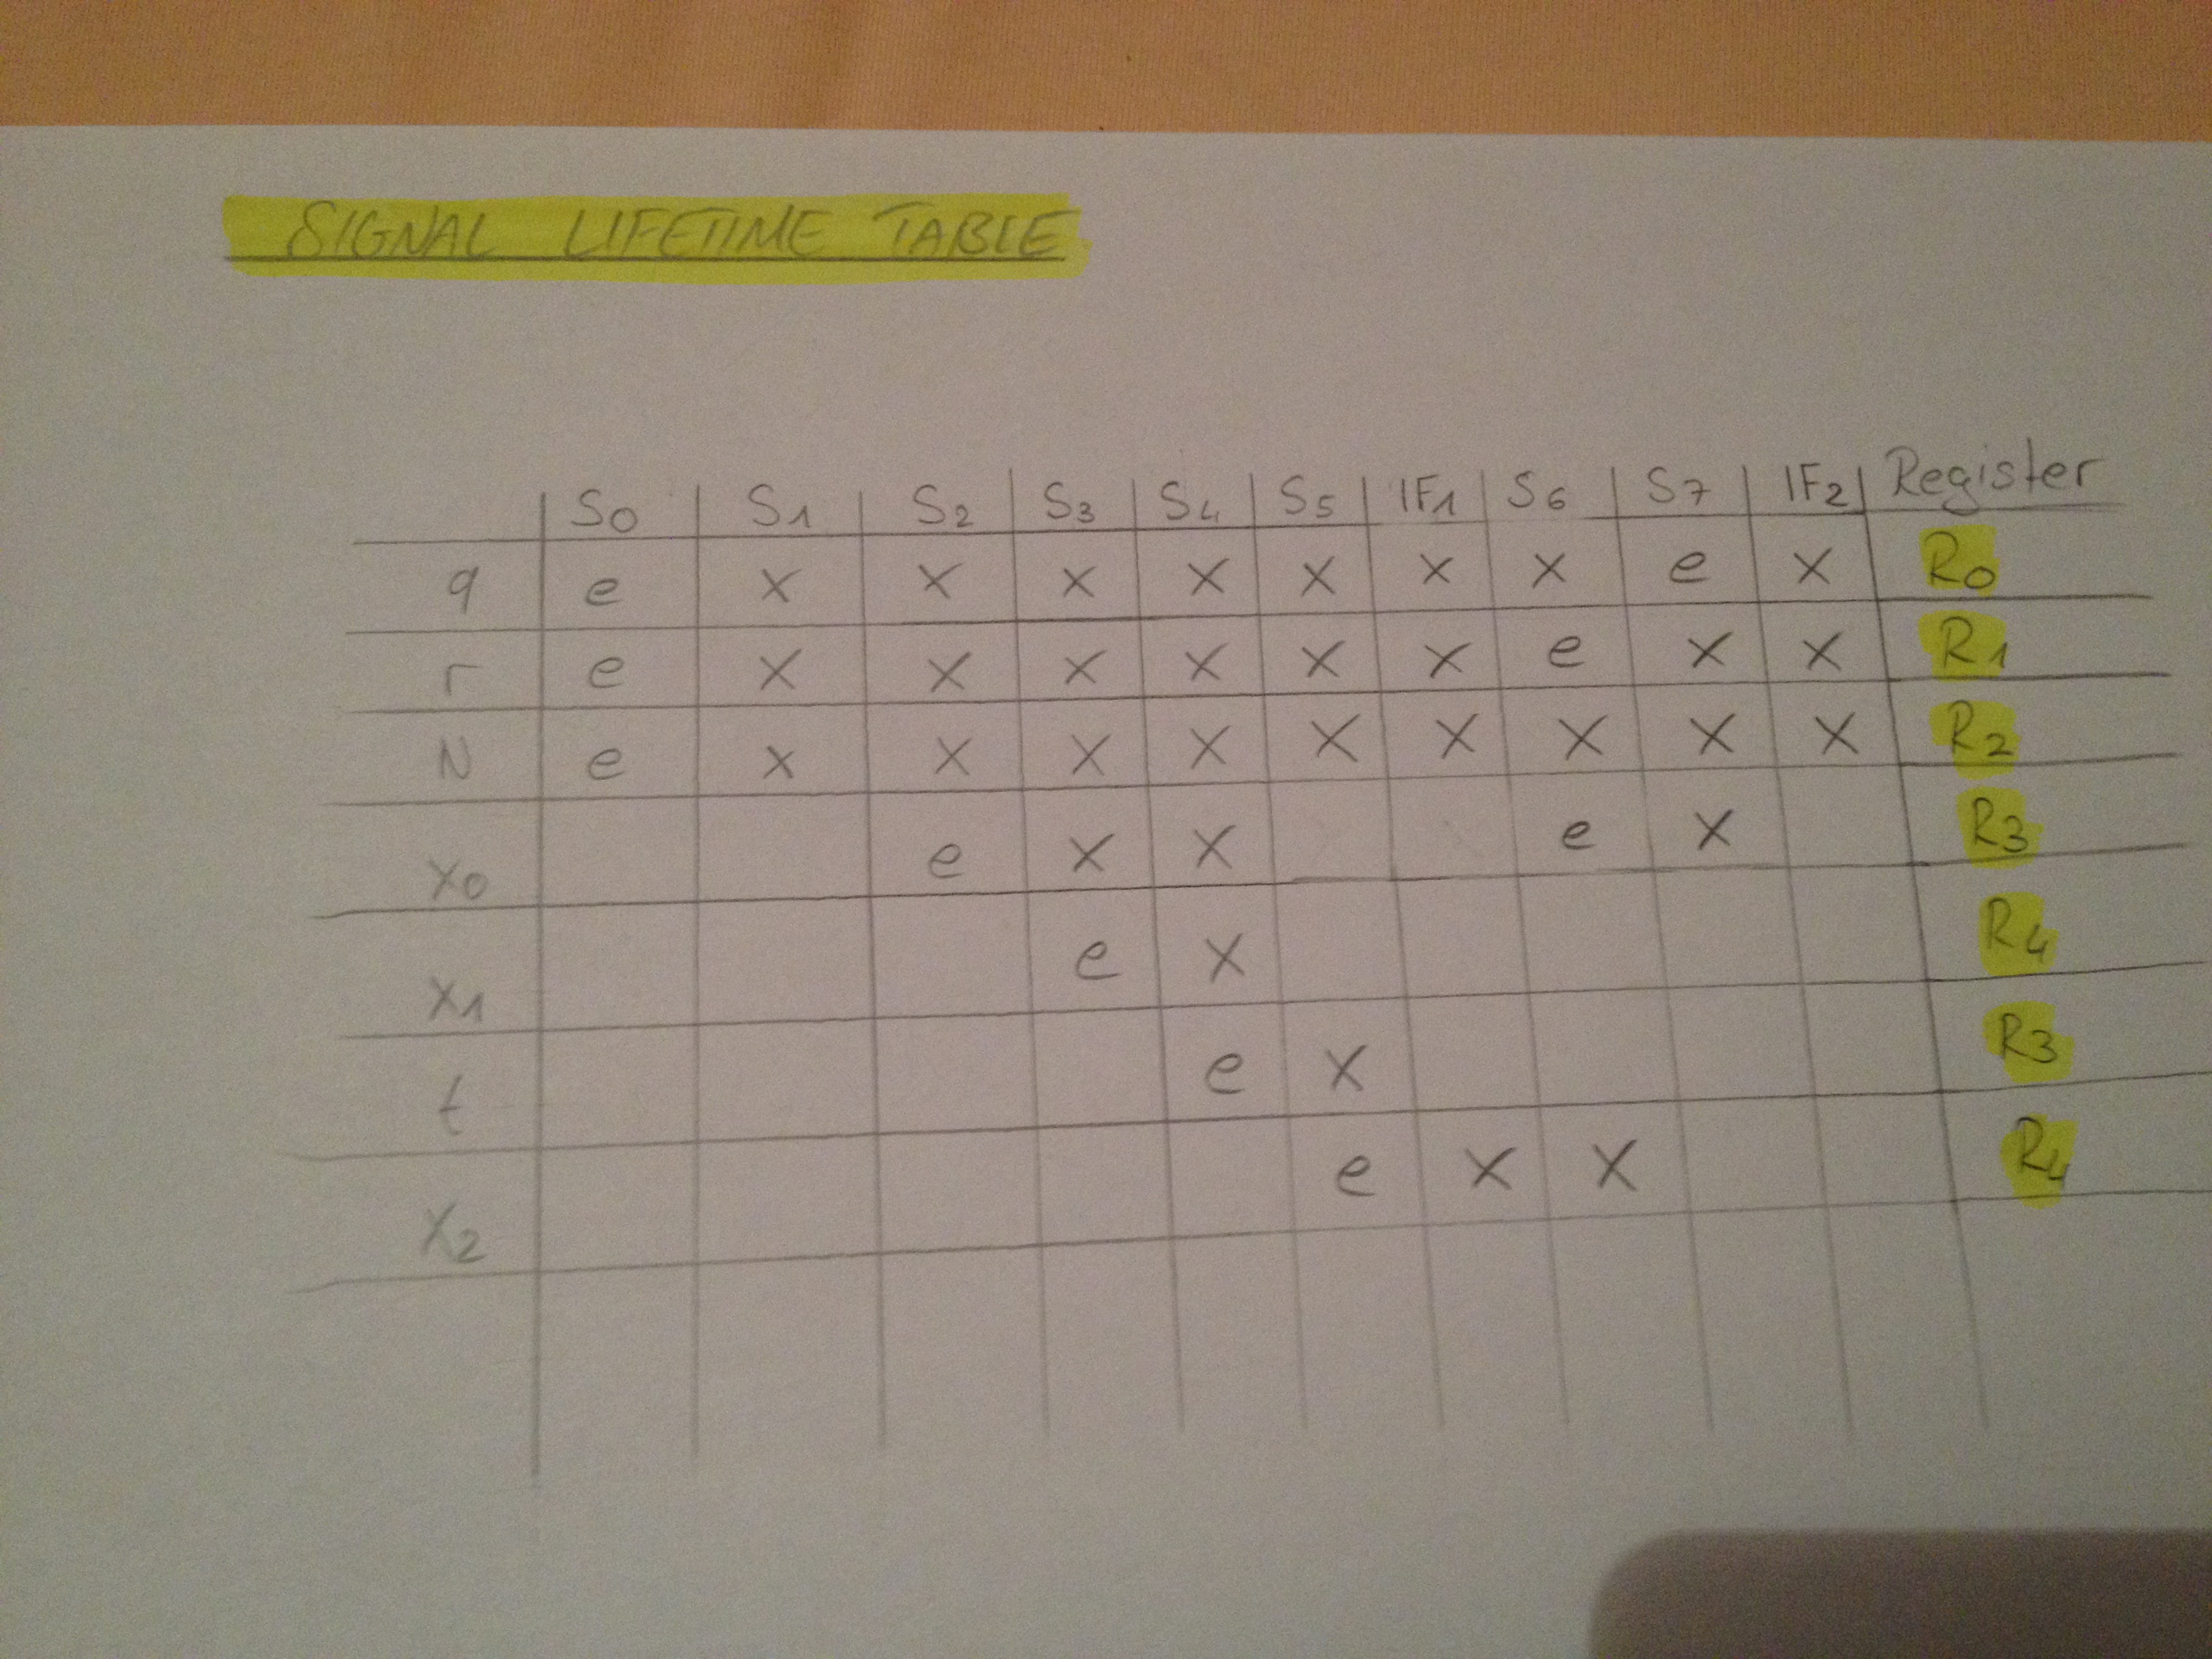 SIGNAL LIFETIME TABLE
S0 S1 S2 S3 S4 S5 IF1 S6 S7 IF2 Register
q e x x x x x x x e x R0
r e x x x x x x e x x R1
N e x x x x x x x x x R2
x0 e x x e x R3
x1 e x R4
t e x R3
x2 e x x R4